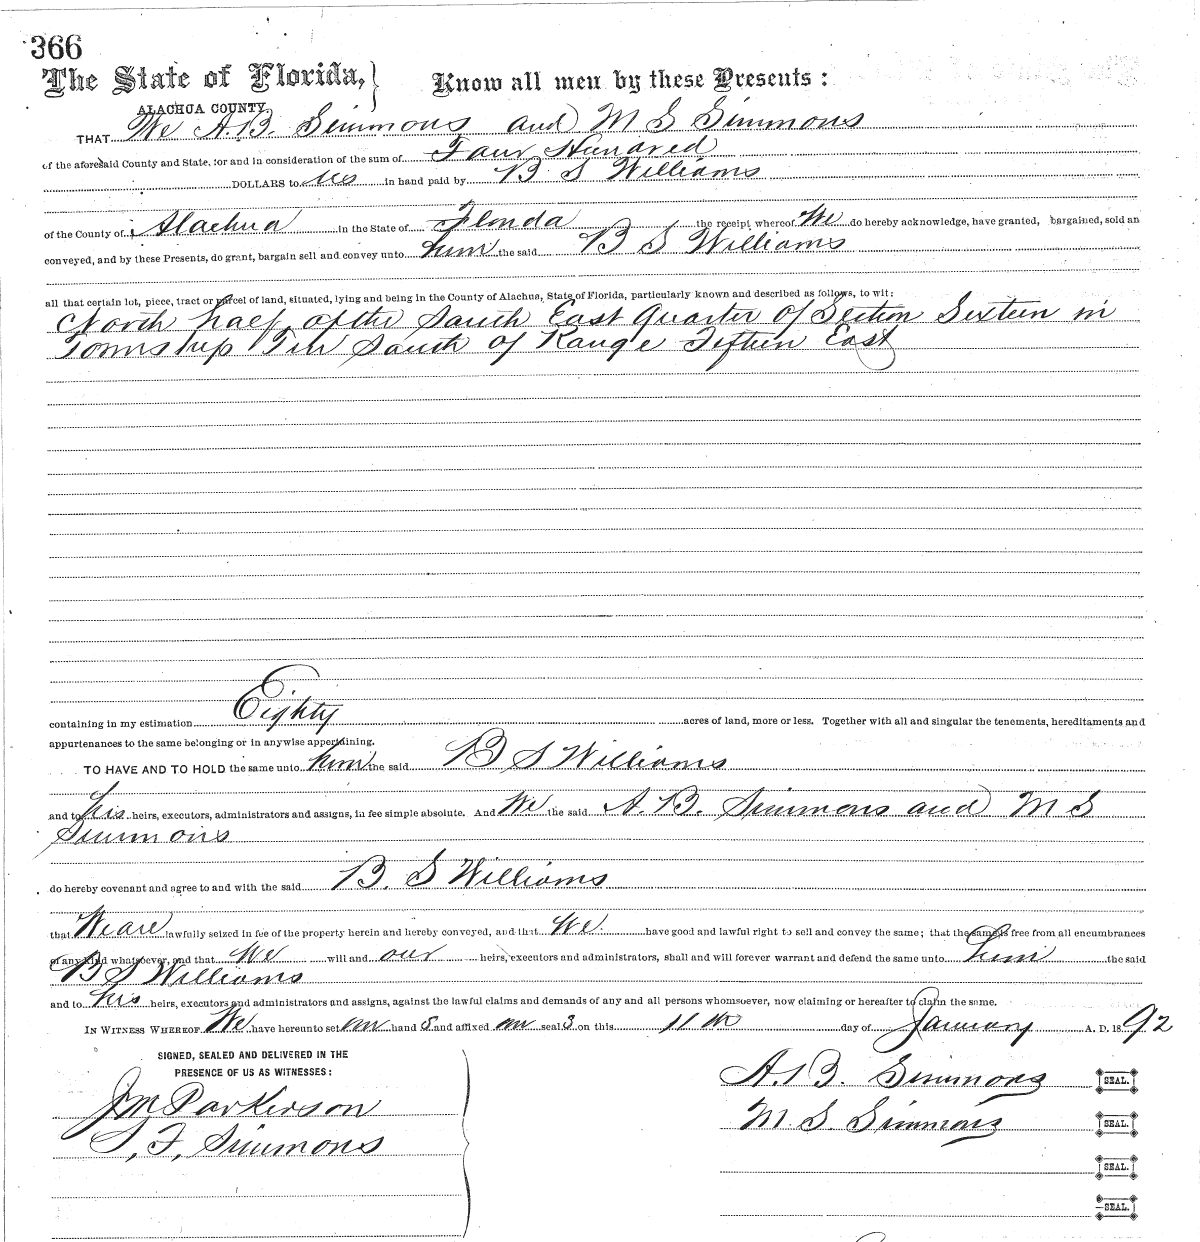 366
The State of Florida, } Know all men by these Presents :
ALACHUA COUNTY
THAT We A. B. Simmons and M S Simmons
of the aforesaid County and State, for and in consideration of the sum of Four Hundred
DOLLARS to us in hand paid by B S Williams
of the County of Alachua in the State of Florida the receipt whereof We do hereby acknowledge, have granted, bargained, sold an
conveyed, and by these Presents, do grant, bargain sell and convey unto him the said B S Williams
all that certain lot, piece, tract or parcel of land, situated, lying and being in the County of Alachua, State of Florida, particularly known and described as follows, to wit:
North half of the South East Quarter of Section Sixteen in
Township Ten South of Range Fifteen East
containing in my estimation Eighty acres of land, more or less. Together with all and singular the tenements, hereditaments and
appurtenances to the same belonging or in anywise appertaining.
TO HAVE AND TO HOLD the same unto him the said B S Williams
and to his heirs, executors, administrators and assigns, in fee simple absolute. And We the said A. B. Simmons and M S
Simmons
do hereby covenant and agree to and with the said B. S Williams
that We are lawfully seized in fee of the property herein and hereby conveyed, and that We have good and lawful right to sell and convey the same; that the same is free from all encumbrances
of any kind whatsoever, and that We will and our heirs, executors and administrators, shall and will forever warrant and defend the same unto him the said
B S Williams
and to his heirs, executors and administrators and assigns, against the lawful claims and demands of any and all persons whomsoever, now claiming or hereafter to claim the same.
IN WITNESS WHEREOF We have hereunto set our hand s and affixed our seal s on this 11th day of January A. D. 1892
SIGNED, SEALED AND DELIVERED IN THE
PRESENCE OF US AS WITNESSES:
A. B. Simmons SEAL.
J M Parkerson
M. S. Simmons SEAL.
S. F. Simmons
SEAL.
SEAL.